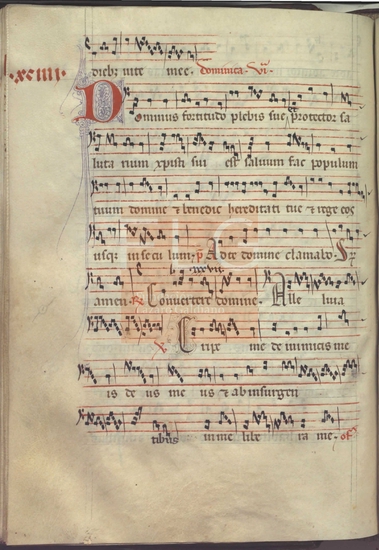 ·xciiii·
dieb; vite mee. dominica. vi.
Dominus fortitudo plebis sue et protector sa
luta rium xpisti sui est salvum fac populum
tuum domine et benedic hereditati tue et rege eos
usq; in seculum. p Ad te domine clamabo.
amen. Convertere domine. Alle luia
Eripe me de inimicis me
is de us me us et ab insurgen
tibus in me libe ra me. of